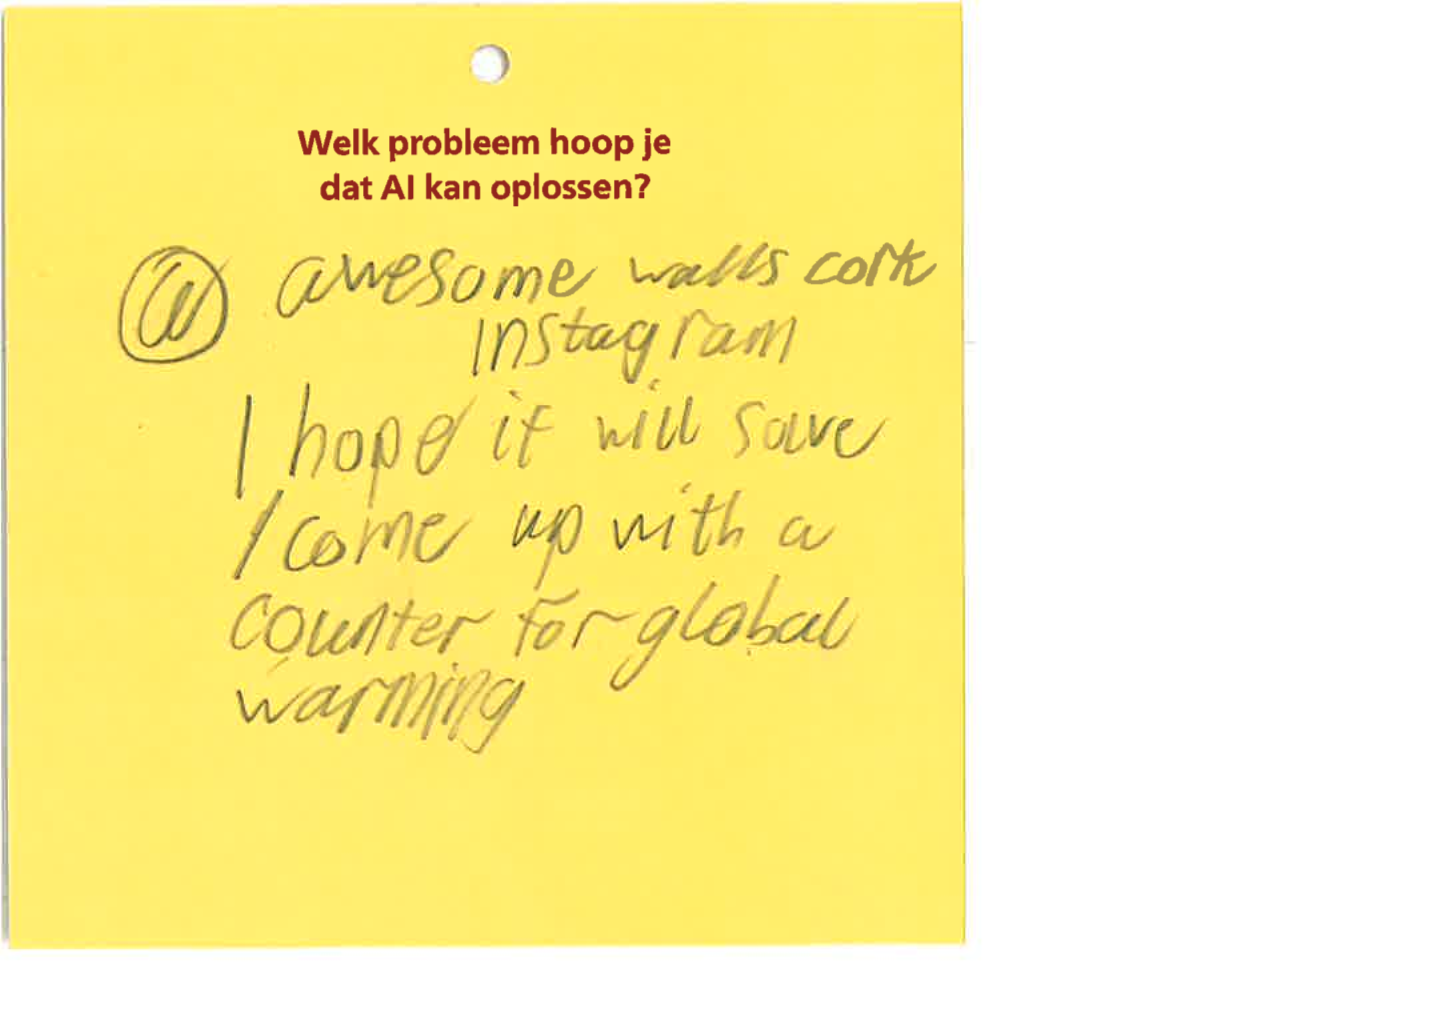 Welk probleem hoop je
dat AI kan oplossen?
@ awesome walls cork
instagram
I hope it will solve
/come up with a
counter for global
warming